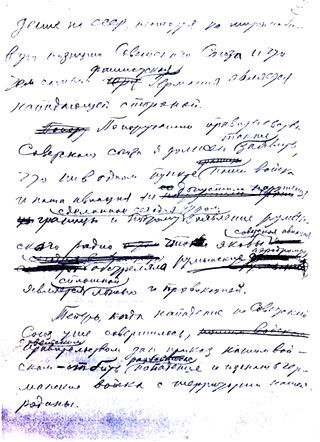 дение на СССР, несмотря на миролюби-
вую позицию Советского Союза и что
тем самым фашистская Германия является
нападающей стороной.
По поручению правительства
Советского союза я должен также заявить,
что ни в одном пункте наши войска
и наша авиация не допустили нарушения
границы и поэтому сделанное сегодня утром заявление румын-
ского радио, что якобы советская авиация
обстреляла румынские аэродромы
является сплошной ложью и провокацией.
Теперь, когда нападение на Советский
Союз уже совершилось,
Советским правительством дан приказ нашим вой-
скам — отбить нападение и изгнать гер-
манские войска с территории нашей
родины.